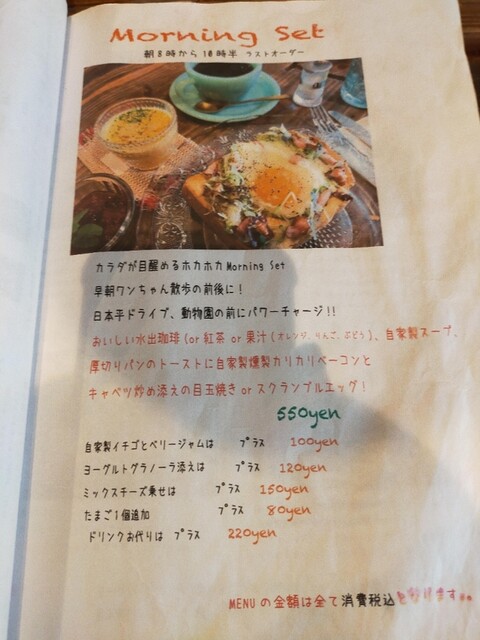 Morning Set
朝8時から10時半 ラストオーダー
カラダが目醒めるホカホカMorning Set
早朝ワンちゃん散歩の前後に!
日本平ドライブ、動物園の前にパワーチャージ!!
おいしい水出珈琲(or 紅茶 or 果汁(オレンジ、りんご、ぶどう)、自家製スープ、
厚切りパンのトーストに自家製燻製カリカリベーコンと
キャベツ炒め添えの目玉焼き or スクランブルエッグ!
550yen
自家製イチゴとベリージャムは プラス 100yen
ヨーグルトグラノーラ添えは プラス 120yen
ミックスチーズ乗せは プラス 150yen
たまご1個追加 プラス 80yen
ドリンクお代りは プラス 220yen
MENUの金額は全て消費税込となります。